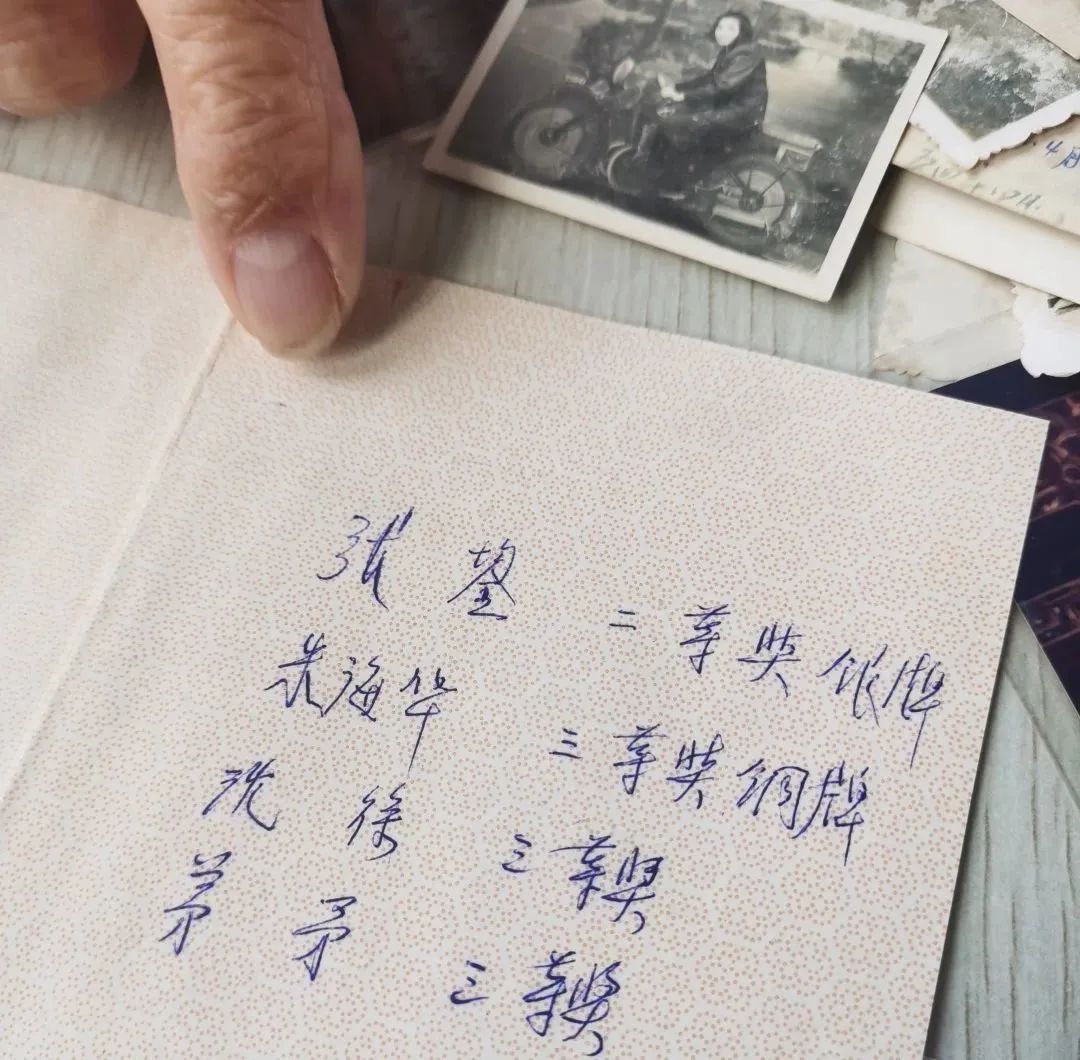 张 鋆 二等奖 银牌
朱海华 三等奖 铜牌
沈 徐 三等奖
茅 矛 三等奖
4月